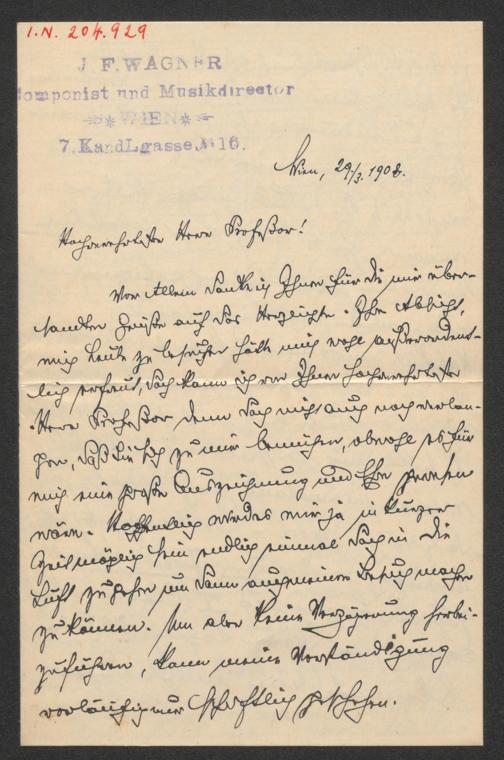 I.N. 204.929
J. F. WAGNER
Componist und Musikdirector
WIEN
7. Kandlgasse № 16.
Wien, 29/3. 1908.
Hochverehrtester Herr Profeßor!
Vor Allem danke ich Ihnen für die mir über-
sandten Grüße auf das Herzlichste. Ihre Absicht,
mich heute zu besuchen hätte mich wohl außerordent-
lich erfreut, doch kann ich von Ihnen hochverehrtester
Herr Profeßor denn doch nicht auch noch verlan-
gen, daß Sie sich zu mir bemühen, obwohl es für
mich eine große Auszeichnung und Ehre gewesen
wäre. Hoffentlich wird es mir ja in kurzer
Zeit möglich sein endlich einmal doch in die
Luft zu gehen um dann auch meinen Besuch machen
zu können. Um aber keine Verzögerung herbei-
zuführen, kann meine Verständigung
vorläufig nur schriftlich geschehen.